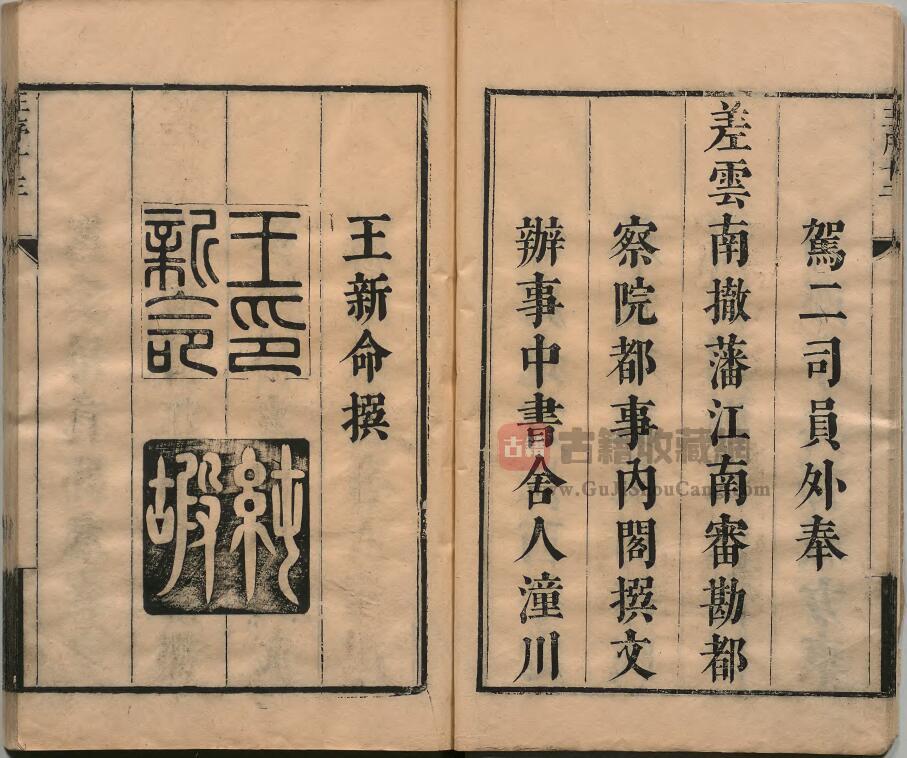 駕二司員外奉
差雲南撤藩江南審勘都
察院都事内閣撰文
辦事中書舍人潼川
王新命撰
王印
新命
純
嘏
古籍
古籍收藏网
www.GuJiShouCang.com